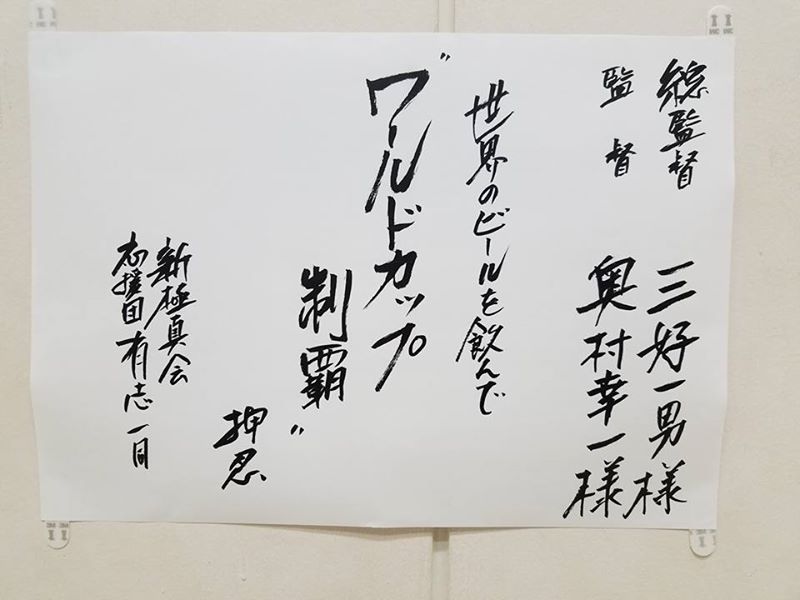 総監督 三好一男様
監督 奥村幸一様
世界のビールを飲んで
"ワールドカップ
制覇"
押忍
新極真会
応援団有志一同